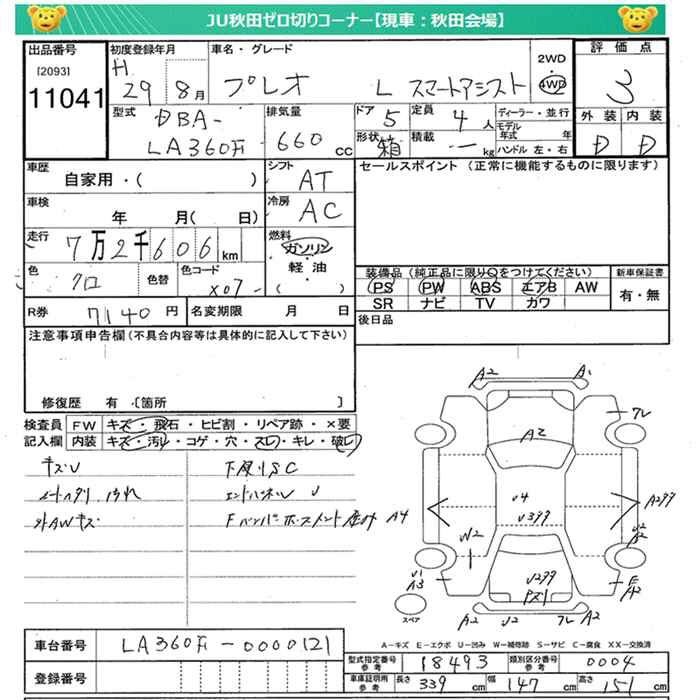 JU秋田ゼロ切りコーナー【現車：秋田会場】
出品番号 初度登録年月 車名・グレード 評価点
[2093] H 29 8月 プレオ L スマートアシスト 2WD 4WD 3
11041
型式 DBA- 排気量 ドア 5 定員 4人 ディーラー・並行 外装 内装
LA360F 660 cc 形状 箱 積載 ー kg モデル年式 年 D D
ハンドル 左・右
車歴 シフト セールスポイント（正常に機能するものに限ります）
自家用・（ ） AT
車検 冷房
年 月（ 日） AC
走行 燃料
7万2千606 km ガソリン
軽・油
色 色替 色コード （ ） 装備品（純正品に限り○をつけてください） 新車保証書
クロ X07 PS PW ABS エアB AW 有・無
SR ナビ TV カワ
R券 7140円 名変期限 月 日 後日品
注意事項申告欄（不具合内容等は具体的に記入して下さい）
修復歴 有〔箇所 〕
検査員 FW キズ・飛石・ヒビ割・リペア跡・×要
記入欄 内装 キズ・汚れ・コゲ・穴・スレ・キレ・破レ
キズU 下廻りSC
エンドパネル U
外AWキズ
A2 A1
フレ
A2
A4 U4 A299
U399
W2 U2
B2
U1
A3 U299 E
A2
スペア A2 U2 フレ A2
A-キズ E-エクボ U-凹み W-補修跡 S-サビ C-腐食 XX-交換済
車台番号 LA360F-0000121
型式指定番号参考 18493 類別区分番号参考 0004
登録番号 車庫証明用参考 長さ 339 cm 幅 147 cm 高さ 151 cm